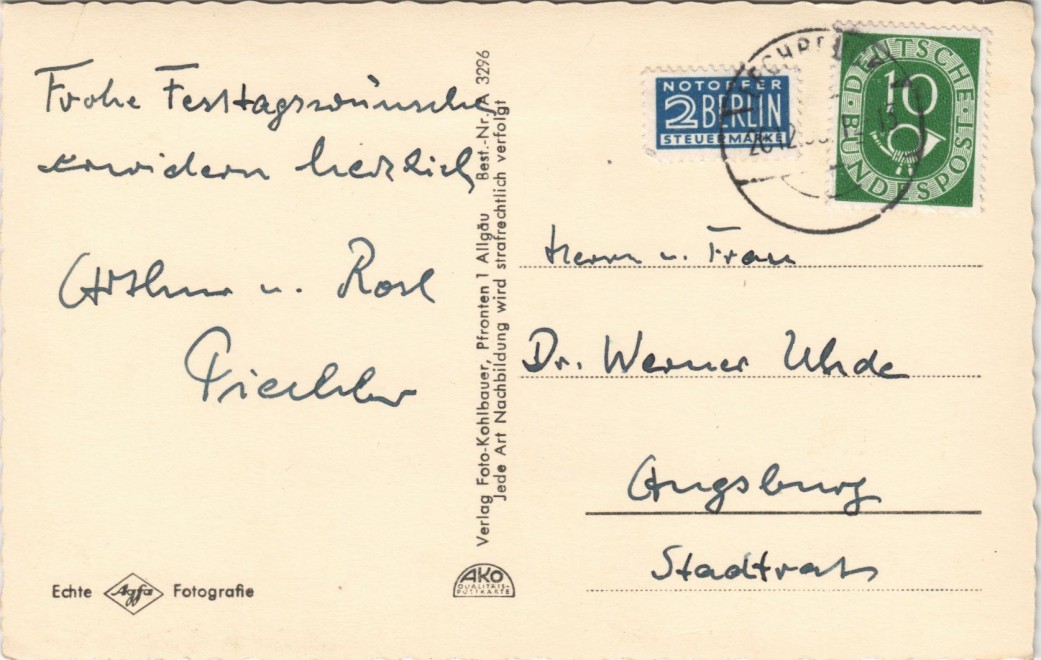 Frohe Festtagswünsche
erwidern herzlich
Arthur u. Rosl
Piechler
Echte Agfa Fotografie
Verlag Foto-Kohlbauer, Pfronten 1 Allgäu Best.-Nr. A 3296
Jede Art Nachbildung wird strafrechtlich verfolgt
AKO
QUALITÄTS-
POSTKARTE
NOTOPFER
2 BERLIN
STEUERMARKE
DEUTSCHE
10
BUNDESPOST
Herrn u. Frau
Dr. Werner Uhde
Augsburg
Stadtrat